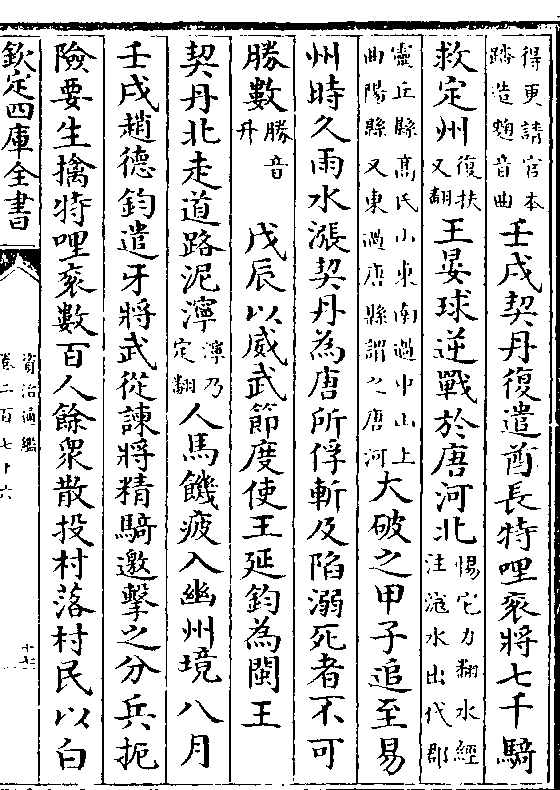 得更請官本
踏造麴音曲
壬戌契丹復遣酋長特哩衮將七千騎
救定州
復扶
又翻
王晏球逆戰於唐河北
惕它力翻水經
注滱水出代郡
靈丘縣髙氏山東南過中山上
曲陽縣又東過唐縣謂之唐河
大破之甲子追至易
州時久雨水漲契丹為唐所俘斬及陷溺死者不可
勝數
勝音
升
戊辰以威武節度使王延鈞為閩王
契丹北走道路泥濘
濘乃
定翻
人馬饑疲入幽州境八月
壬戌趙德鈞遣牙將武從諫將精騎邀擊之分兵扼
險要生擒特哩衮數百人餘衆散投村落村民以白
欽定四庫全書
資治通鑑
卷二百七十六
十七